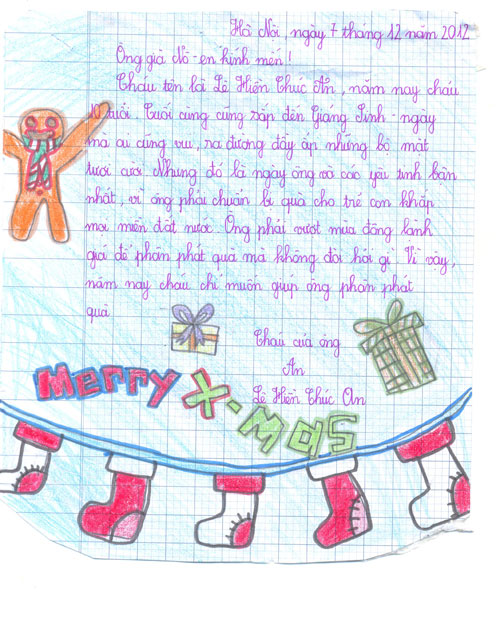 Hà Nội, ngày 7 tháng 12 năm 2012
Ông già Nô-en kính mến!
Cháu tên là Lê Hiền Thúc An, năm nay cháu
10 tuổi. Cuối cùng cũng sắp đến Giáng Sinh - ngày
mà ai cũng vui, ra đường đầy ắp những bộ mặt
tươi cười. Nhưng đó là ngày ông và các yêu tinh bận
nhất, vì ông phải chuẩn bị quà cho trẻ con khắp
mọi miền đất nước. Ông phải vượt mùa đông lạnh
giá để phân phát quà mà không đòi hỏi gì. Vì vậy,
năm nay cháu chỉ muốn giúp ông phân phát
quà
Cháu của ông
An
Lê Hiền Thúc An
Merry X-mas